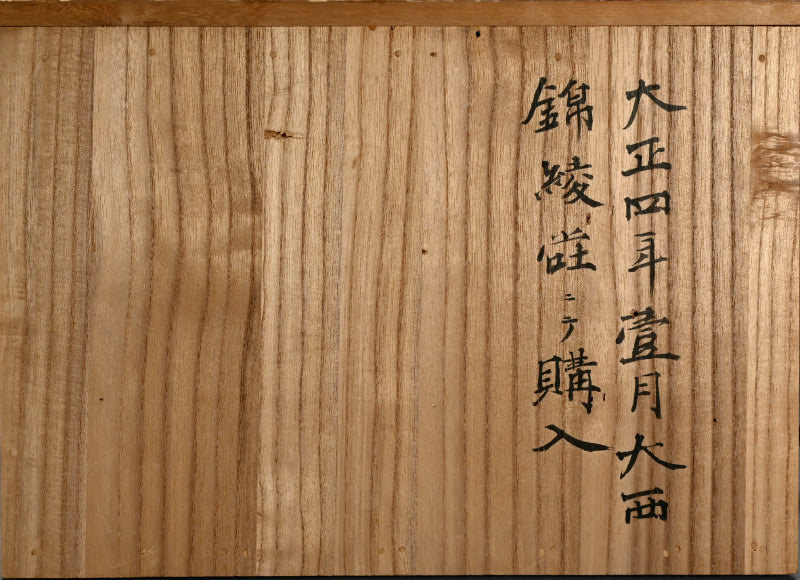 大正四年壹月大西
錦綾ニテ購入